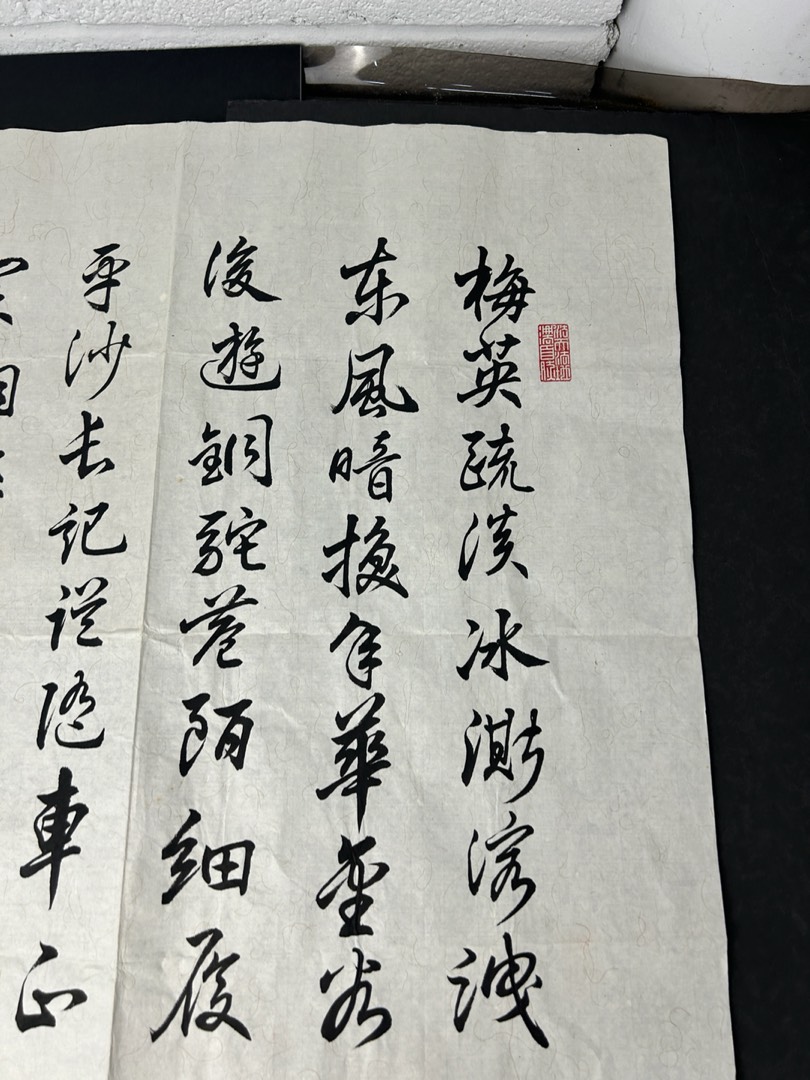 梅英疏淡冰澌溶洩
东風暗換年華金谷
浚遊銅駝巷陌細履
平沙长記誤隨車正